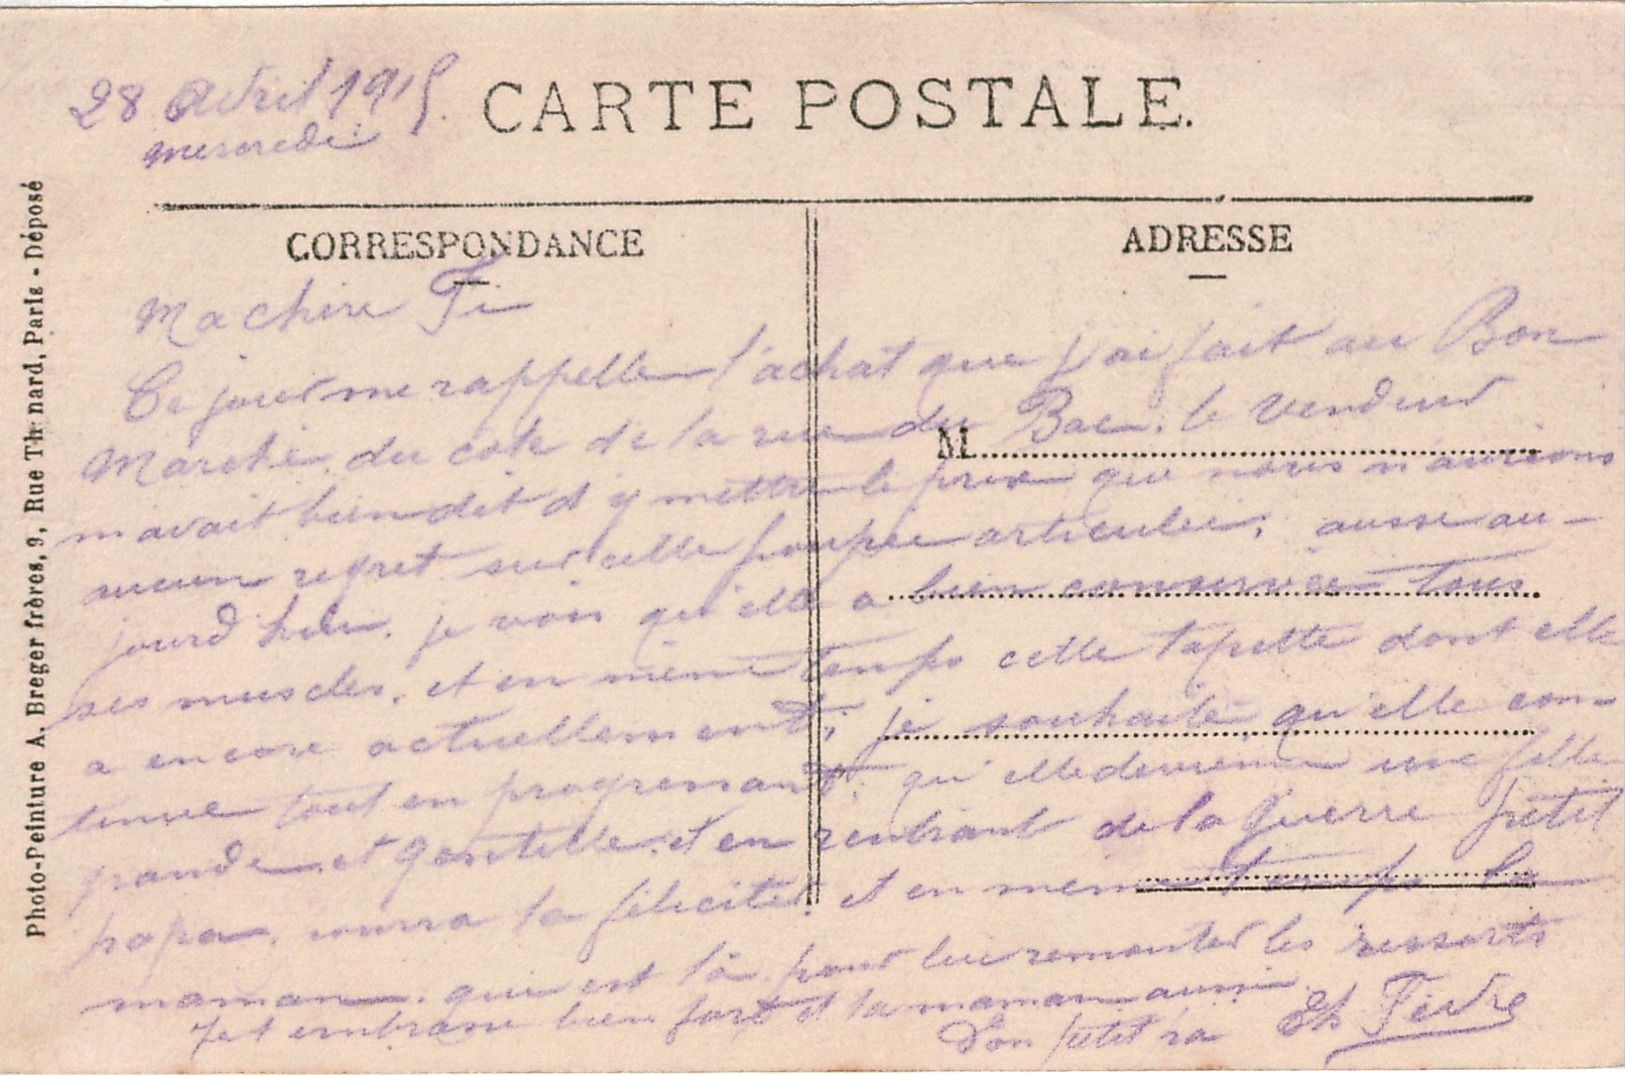 28 Avril 1915.
mercredi
CARTE POSTALE.
CORRESPONDANCE
ADRESSE
M
Photo-Peinture A. Breger frères, 9, Rue Thénard, Paris - Déposé
Ma chère Fi
Ce jour me rappelle l'achat que j'ai fait au Bon
Marché, du coté de la rue du Bac. le vendeur
m'avait bien dit d'y mettre le prix que nous n'aurions
aucun regret sur cette poupée articulée, aussi au-
jourd'hui, je vois qu'elle a bien conservée tous
ses muscles, et en même temps cette tapette dont elle
a encore actuellement; je souhaite qu'elle con-
tinue tout en progressant, qu'elle devienne une fille
grande et gentille, et en rentrant de la guerre petit
papa, pourra la féliciter et en même temps la
maman qui est là pour lui remonter les ressorts
Je t embrasse bien fort et ta maman aussi
Ton petit pa Fèvre